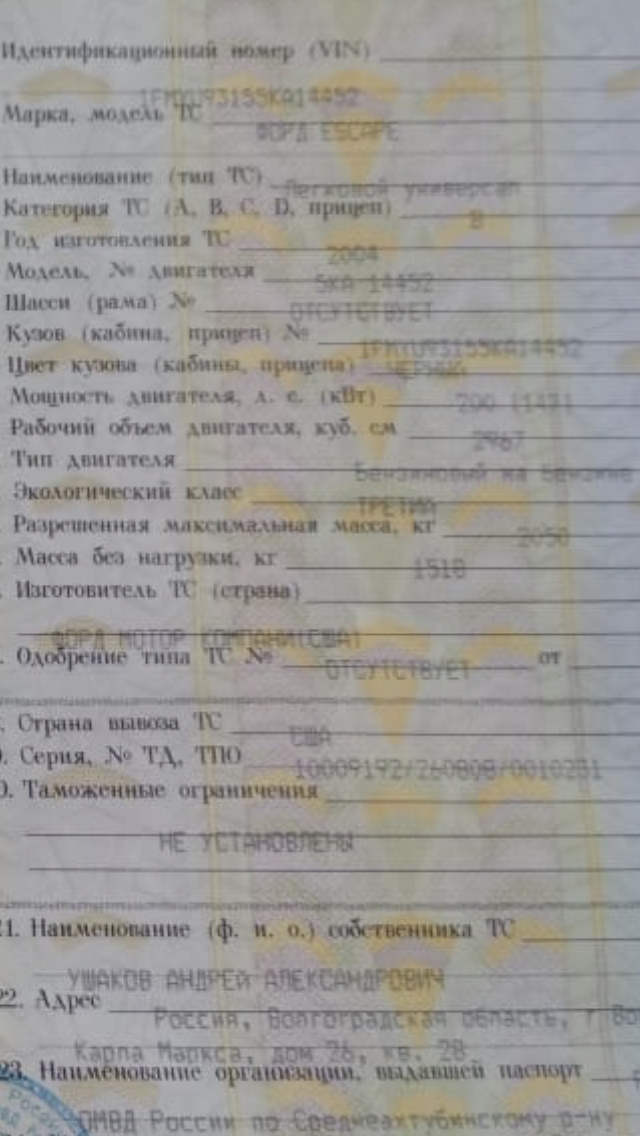 Идентификационный номер (VIN)
1FMYU93155KA14452
Марка, модель ТС
ФОРД ESCAPE
Наименование (тип ТС) Легковой универсал
Категория ТС (А, В, С, D, прицеп) В
Год изготовления ТС 2004
Модель, № двигателя 5КА 14452
Шасси (рама) № ОТСУТСТВУЕТ
Кузов (кабина, прицеп) № 1FMYU93155KA14452
Цвет кузова (кабины, прицепа) ЧЕРНЫЙ
Мощность двигателя, л. с. (кВт) 200 (147)
Рабочий объем двигателя, куб. см 2967
Тип двигателя Бензиновый на бензине
Экологический класс ТРЕТИЙ
Разрешенная максимальная масса, кг 2050
Масса без нагрузки, кг 1518
Изготовитель ТС (страна)
ФОРД МОТОР КОМПАНИ(США)
Одобрение типа ТС № ОТСУТСТВУЕТ от
Страна вывоза ТС США
Серия, № ТД, ТПО 10009192/260808/0010231
0. Таможенные ограничения
НЕ УСТАНОВЛЕНЫ
21. Наименование (ф. и. о.) собственника ТС
УШАКОВ АНДРЕЙ АЛЕКСАНДРОВИЧ
22. Адрес
Россия, Волгоградская область, г Во
Карла Маркса, дом 26, кв. 28
23. Наименование организации, выдавшей паспорт
ОМВД России по Среднеахтубинскому р-ну